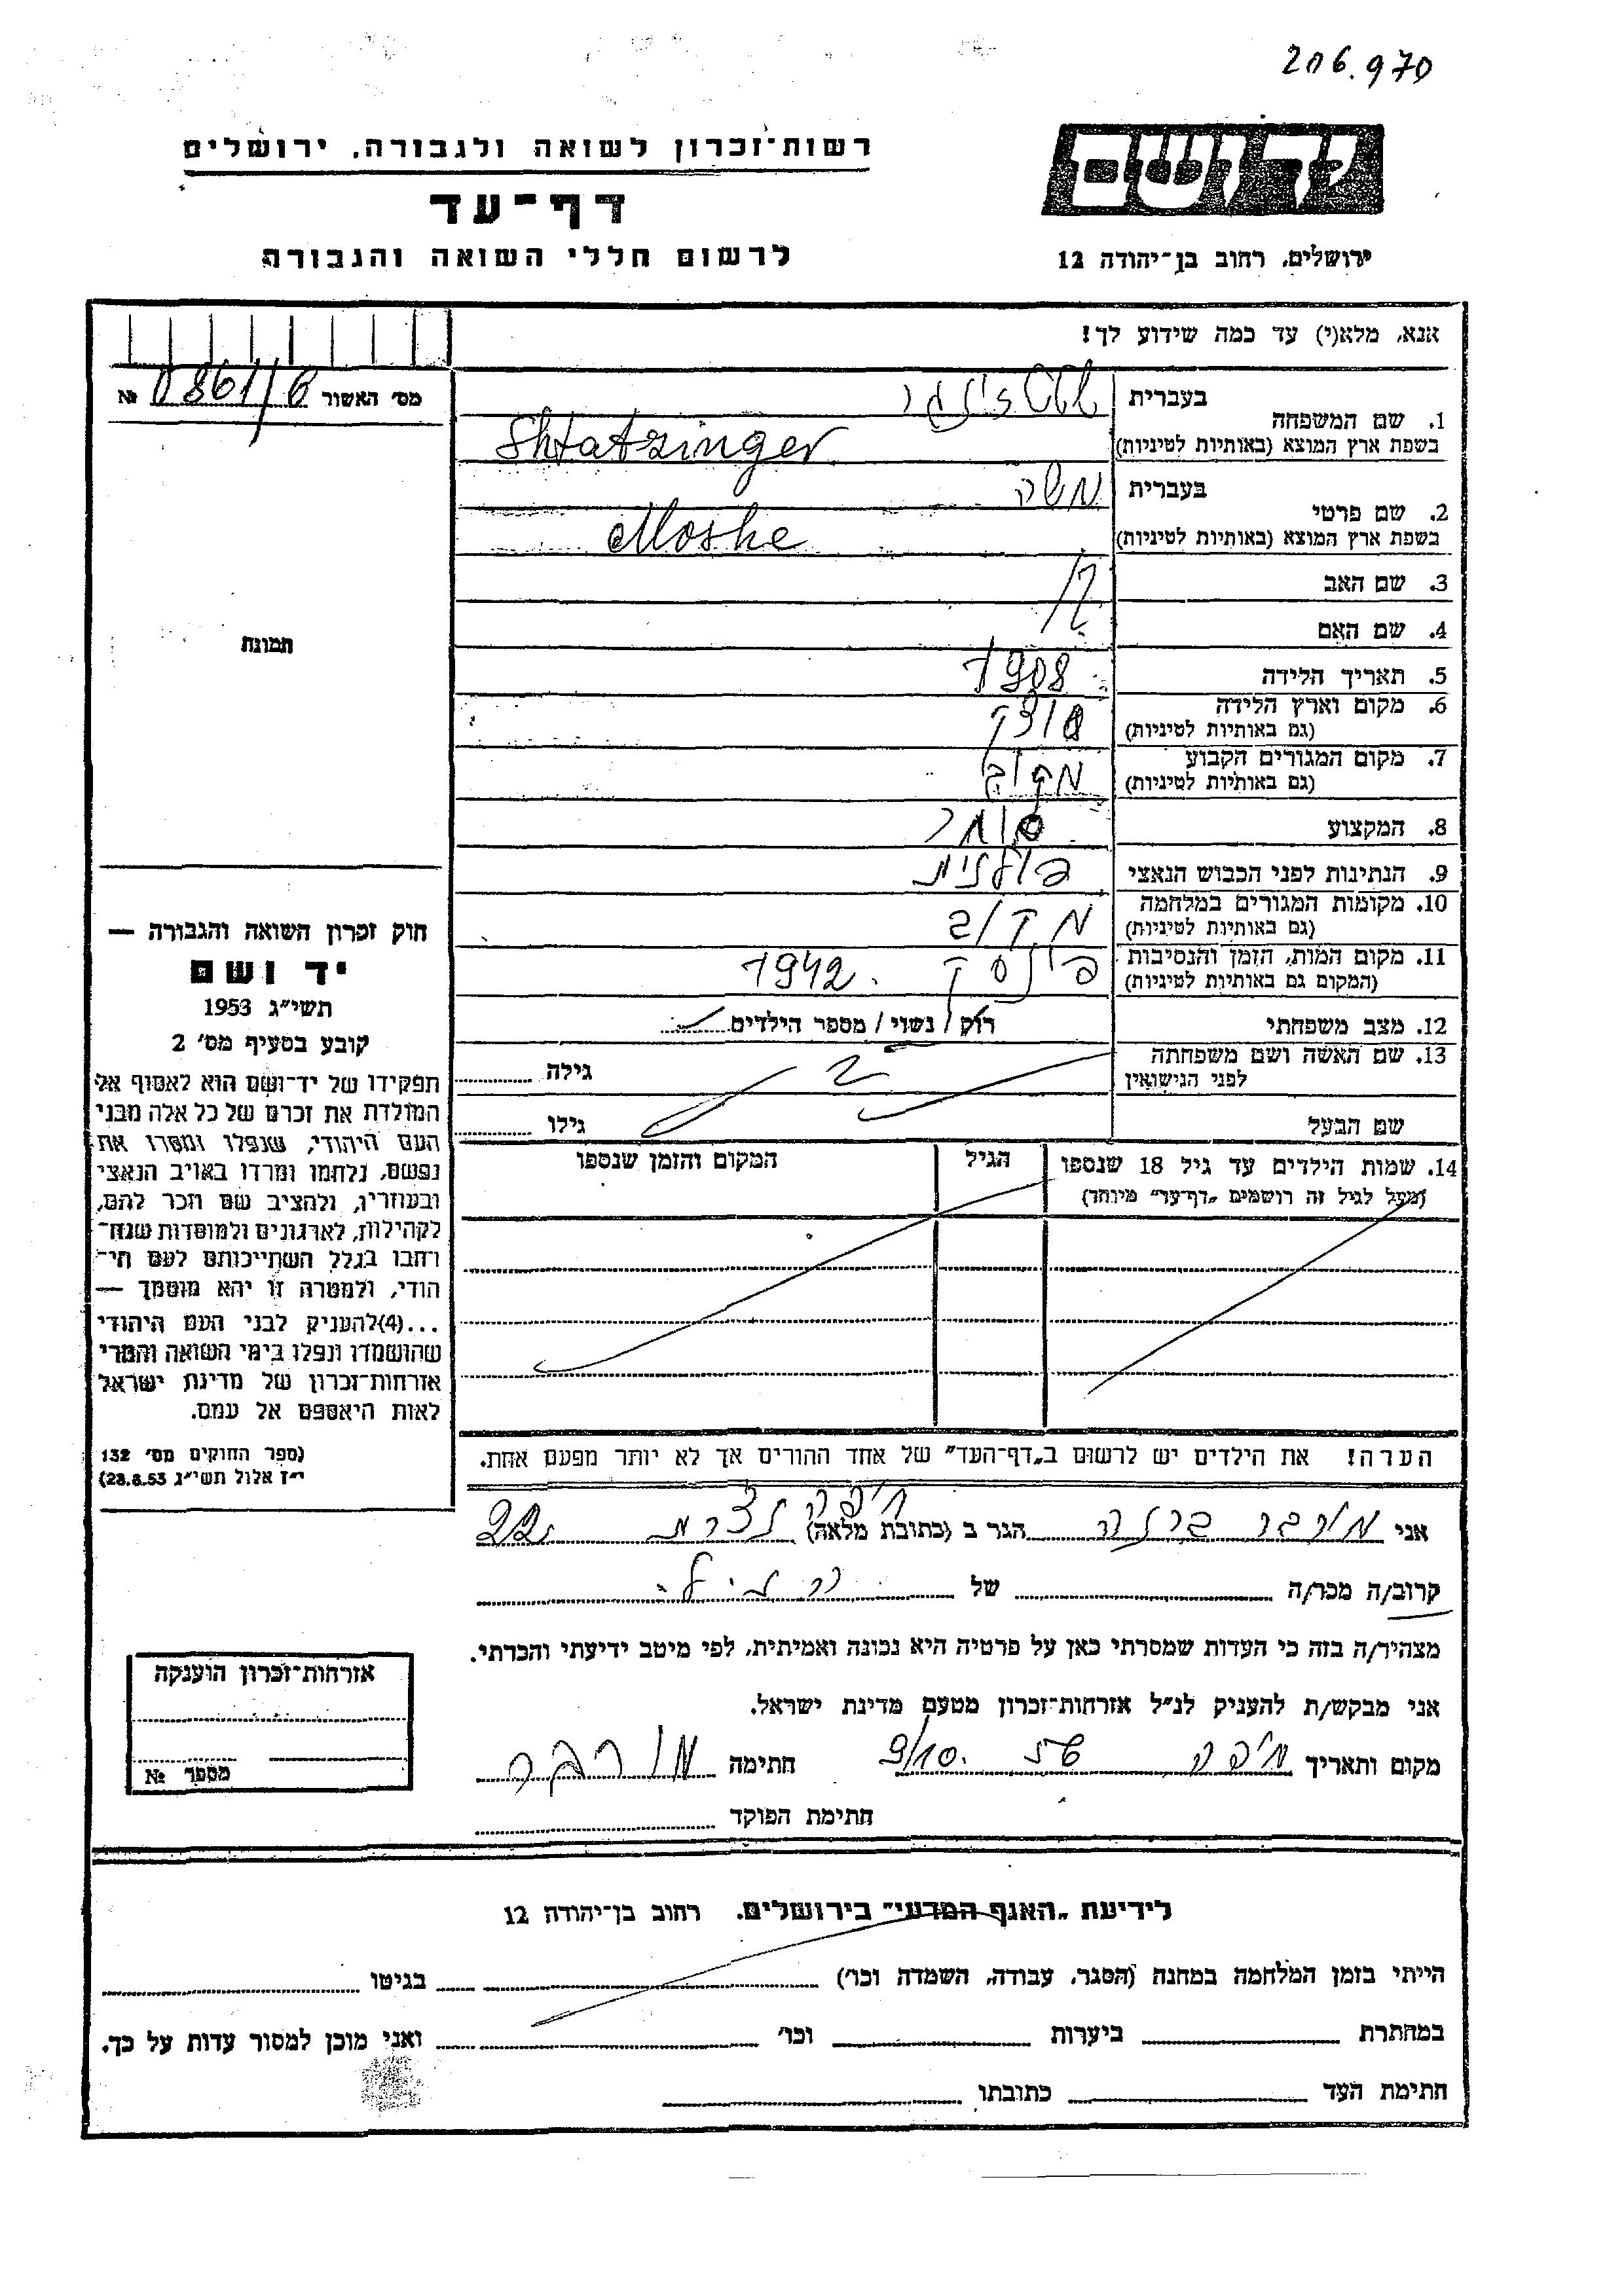 206.970
יד ושם
רשות־זכרון לשואה ולגבורה, ירושלים
דף־עד
לרשום חללי השואה והגבורה
ירושלים, רחוב בן־יהודה 12
אנא, מלא(י) עד כמה שידוע לך!
מס׳ האשור 0861/6 №
1. שם המשפחה
בעברית
בשפת ארץ המוצא (באותיות לטיניות) Shtatzinger
2. שם פרטי
בעברית משה
בשפת ארץ המוצא (באותיות לטיניות) Moshe
3. שם האב
4. שם האם
5. תאריך הלידה 1908
6. מקום וארץ הלידה
(גם באותיות לטיניות)
7. מקום המגורים הקבוע
(גם באותיות לטיניות)
8. המקצוע סוחר
9. הנתינות לפני הכבוש הנאצי פולנית
10. מקומות המגורים במלחמה
(גם באותיות לטיניות)
11. מקום המות, הזמן והנסיבות פינסק 1942
(המקום גם באותיות לטיניות)
12. מצב משפחתי רוק / נשוי / מספר הילדים
13. שם האשה ושם משפחתה
לפני הנישואין
גילה
שם הבעל
גילו
14. שמות הילדים עד גיל 18 שנספו
(מעל לגיל זה רושמים „דף־עד״ מיוחד)
הגיל
המקום והזמן שנספו
הערה! את הילדים יש לרשום ב„דף־העד״ של אחד ההורים אך לא יותר מפעם אחת.
תמונה
חוק זכרון השואה והגבורה —
יד ושם
תשי״ג 1953
קובע בסעיף מס׳ 2
תפקידו של יד־ושם הוא לאסוף אל
המולדת את זכרם של כל אלה מבני
העם היהודי, שנפלו ומסרו את
נפשם, נלחמו ומרדו באויב הנאצי
ובעוזריו, ולהציב שם וזכר להם,
לקהילות, לארגונים ולמוסדות שנח־
רחבו בגלל השתייכותם לעם הי־
הודי, ולמטרה זו יהא מוסמך —
...(4)להעניק לבני העם היהודי
שהושמדו ונפלו בימי השואה והמרי
אזרחות־זכרון של מדינת ישראל
לאות היאספם אל עמם.
(ספר החוקים מס׳ 132
י״ז אלול תשי״ג 28.8.53)
אני הגר ב (כתובת מלאה) חיפה נצרת 22
קרוב/ה מכר/ה של
מצהיר/ה בזה כי העדות שמסרתי כאן על פרטיה היא נכונה ואמיתית, לפי מיטב ידיעתי והכרתי.
אני מבקש/ת להעניק לנ״ל אזרחות־זכרון מטעם מדינת ישראל.
מקום ותאריך חיפה 9/10. חתימה
חתימת הפוקד
אזרחות־זכרון הוענקה
מספר №
לידיעת „האגף המדעי״ בירושלים. רחוב בן־יהודה 12
הייתי בזמן המלחמה במחנה (הסגר, עבודה, השמדה וכו׳) בגיטו
במחתרת ביערות וכו׳ ואני מוכן למסור עדות על כך.
חתימת העד כתובתו